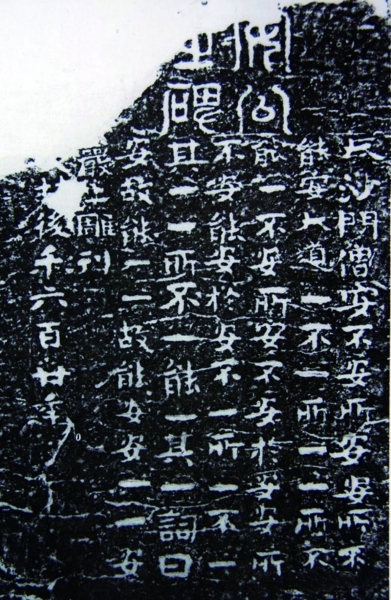 公
之碑
大沙門僧安不安所安安所不
能安大道一不一所一一所不
能一不安所安不安於安安所
不安能安於安不一所一不一
其一一所不一能一其一詞曰
安故能一一故能安安一一安
嚴上雕刊
後千六百廿年